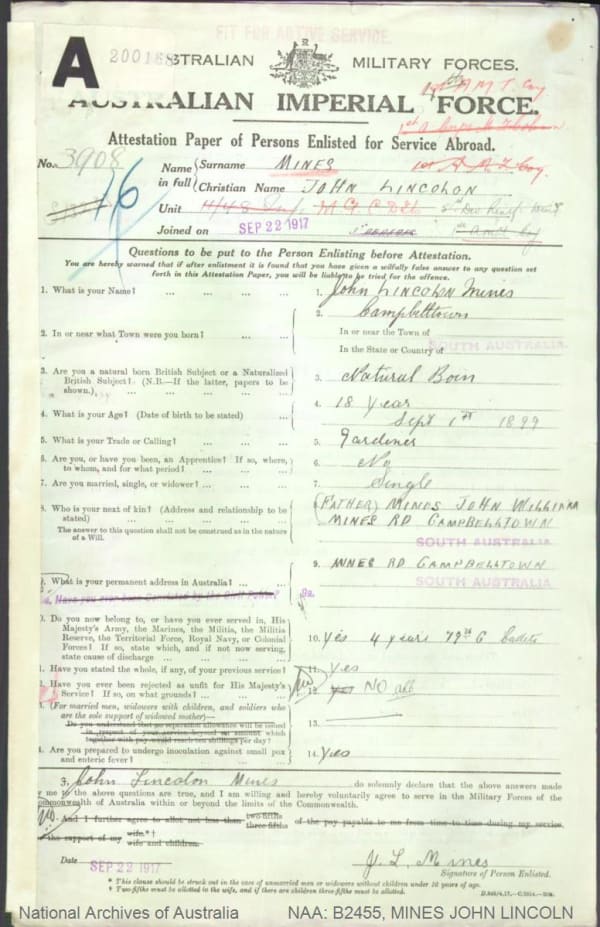 FIT FOR ACTIVE SERVICE.
A
AUSTRALIAN MILITARY FORCES.
AUSTRALIAN IMPERIAL FORCE.
1st A M T. Coy
Attestation Paper of Persons Enlisted for Service Abroad.
No. 3908
16
Name in full
Surname MINES
Christian Name JOHN LINCOLON
Unit M G C Det
Joined on SEP 22 1917
Questions to be put to the Person Enlisting before Attestation.
You are hereby warned that if after enlistment it is found that you have given a wilfully false answer to any question set
forth in this Attestation Paper, you will be liable to be tried for the offence.
1. What is your Name? ... ... ... ...
1. John LINCOLON Mines
2. In or near what Town were you born? ... ...
2. Campbelltown
In or near the Town of
In the State or Country of SOUTH AUSTRALIA.
3. Are you a natural born British Subject or a Naturalized
British Subject? (N.B.—If the latter, papers to be
shown.)
3. Natural Born
4. What is your Age? (Date of birth to be stated) ...
4. 18 Year
Sept 1st 1899
5. What is your Trade or Calling? ... ... ...
5. Gardiner
6. Are you, or have you been, an Apprentice? If so, where,
to whom, and for what period? ... ... ...
6. No
7. Are you married, single, or widower? ... ... ...
7. Single
8. Who is your next of kin? (Address and relationship to be
stated) ... ... ... ... ...
The answer to this question shall not be construed as in the nature
of a Will.
(FATHER) MINES JOHN WILLIAM
MINES RD CAMPBELLTOWN
SOUTH AUSTRALIA
9. What is your permanent address in Australia? ... ...
9. MINES RD CAMPBELLTOWN
SOUTH AUSTRALIA
Have you ever been Convicted by the Civil Power?
9a.
0. Do you now belong to, or have you ever served in, His
Majesty's Army, the Marines, the Militia, the Militia
Reserve, the Territorial Force, Royal Navy, or Colonial
Forces? If so, state which, and if not now serving,
state cause of discharge ... ... ...
10. Yes 4 years 79th G Cadets
1. Have you stated the whole, if any, of your previous service?
11. Yes
2. Have you ever been rejected as unfit for His Majesty's
Service? If so, on what grounds? ... ...
12. yes NO
3. (For married men, widowers with children, and soldiers who
are the sole support of widowed mother)—
Do you understand that no separation allowance will be issued
in respect of your service beyond an amount which
together with pay would reach ten shillings per day?
13.
4. Are you prepared to undergo inoculation against small pox
and enteric fever?
14. Yes
I, John Lincolon Mines do solemnly declare that the above answers made
by me to the above questions are true, and I am willing and hereby voluntarily agree to serve in the Military Forces of the
Commonwealth of Australia within or beyond the limits of the Commonwealth.
No. And I further agree to allot not less than two-fifths three-fifths of the pay payable to me from time to time during my service
for the support of my wife.*† wife and children.
Date SEP 22 1917
J. L. Mines
Signature of Person Enlisted.
* This clause should be struck out in the case of unmarried men or widowers without children under 18 years of age.
† Two-fifths must be allotted to the wife, and if there are children three-fifths must be allotted.
National Archives of Australia
NAA: B2455, MINES JOHN LINCOLN